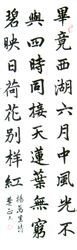 畢竟西湖六月中風光不
與四時同接天蓮葉無窮
碧映日荷花別樣紅
楊萬里詩